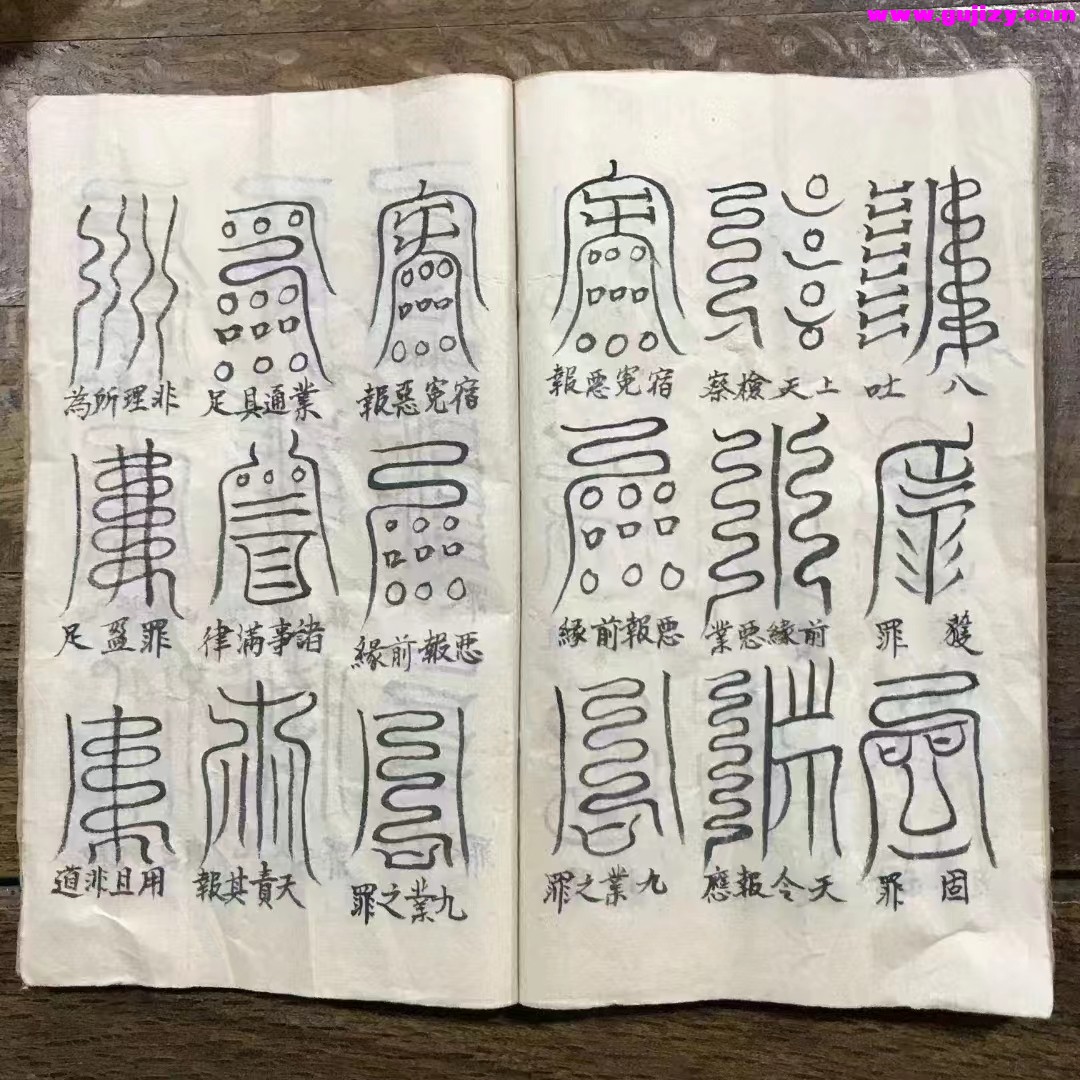 www.gujizy.com
八吐
罪
固罪
上天檢察
前緣惡業
天令報應
宿寃惡報
惡報前緣
九業之罪
宿寃惡報
惡報前緣
九業之罪
業通具足
諸事滿律
天責其報
非理所為
罪盈足
用且非道